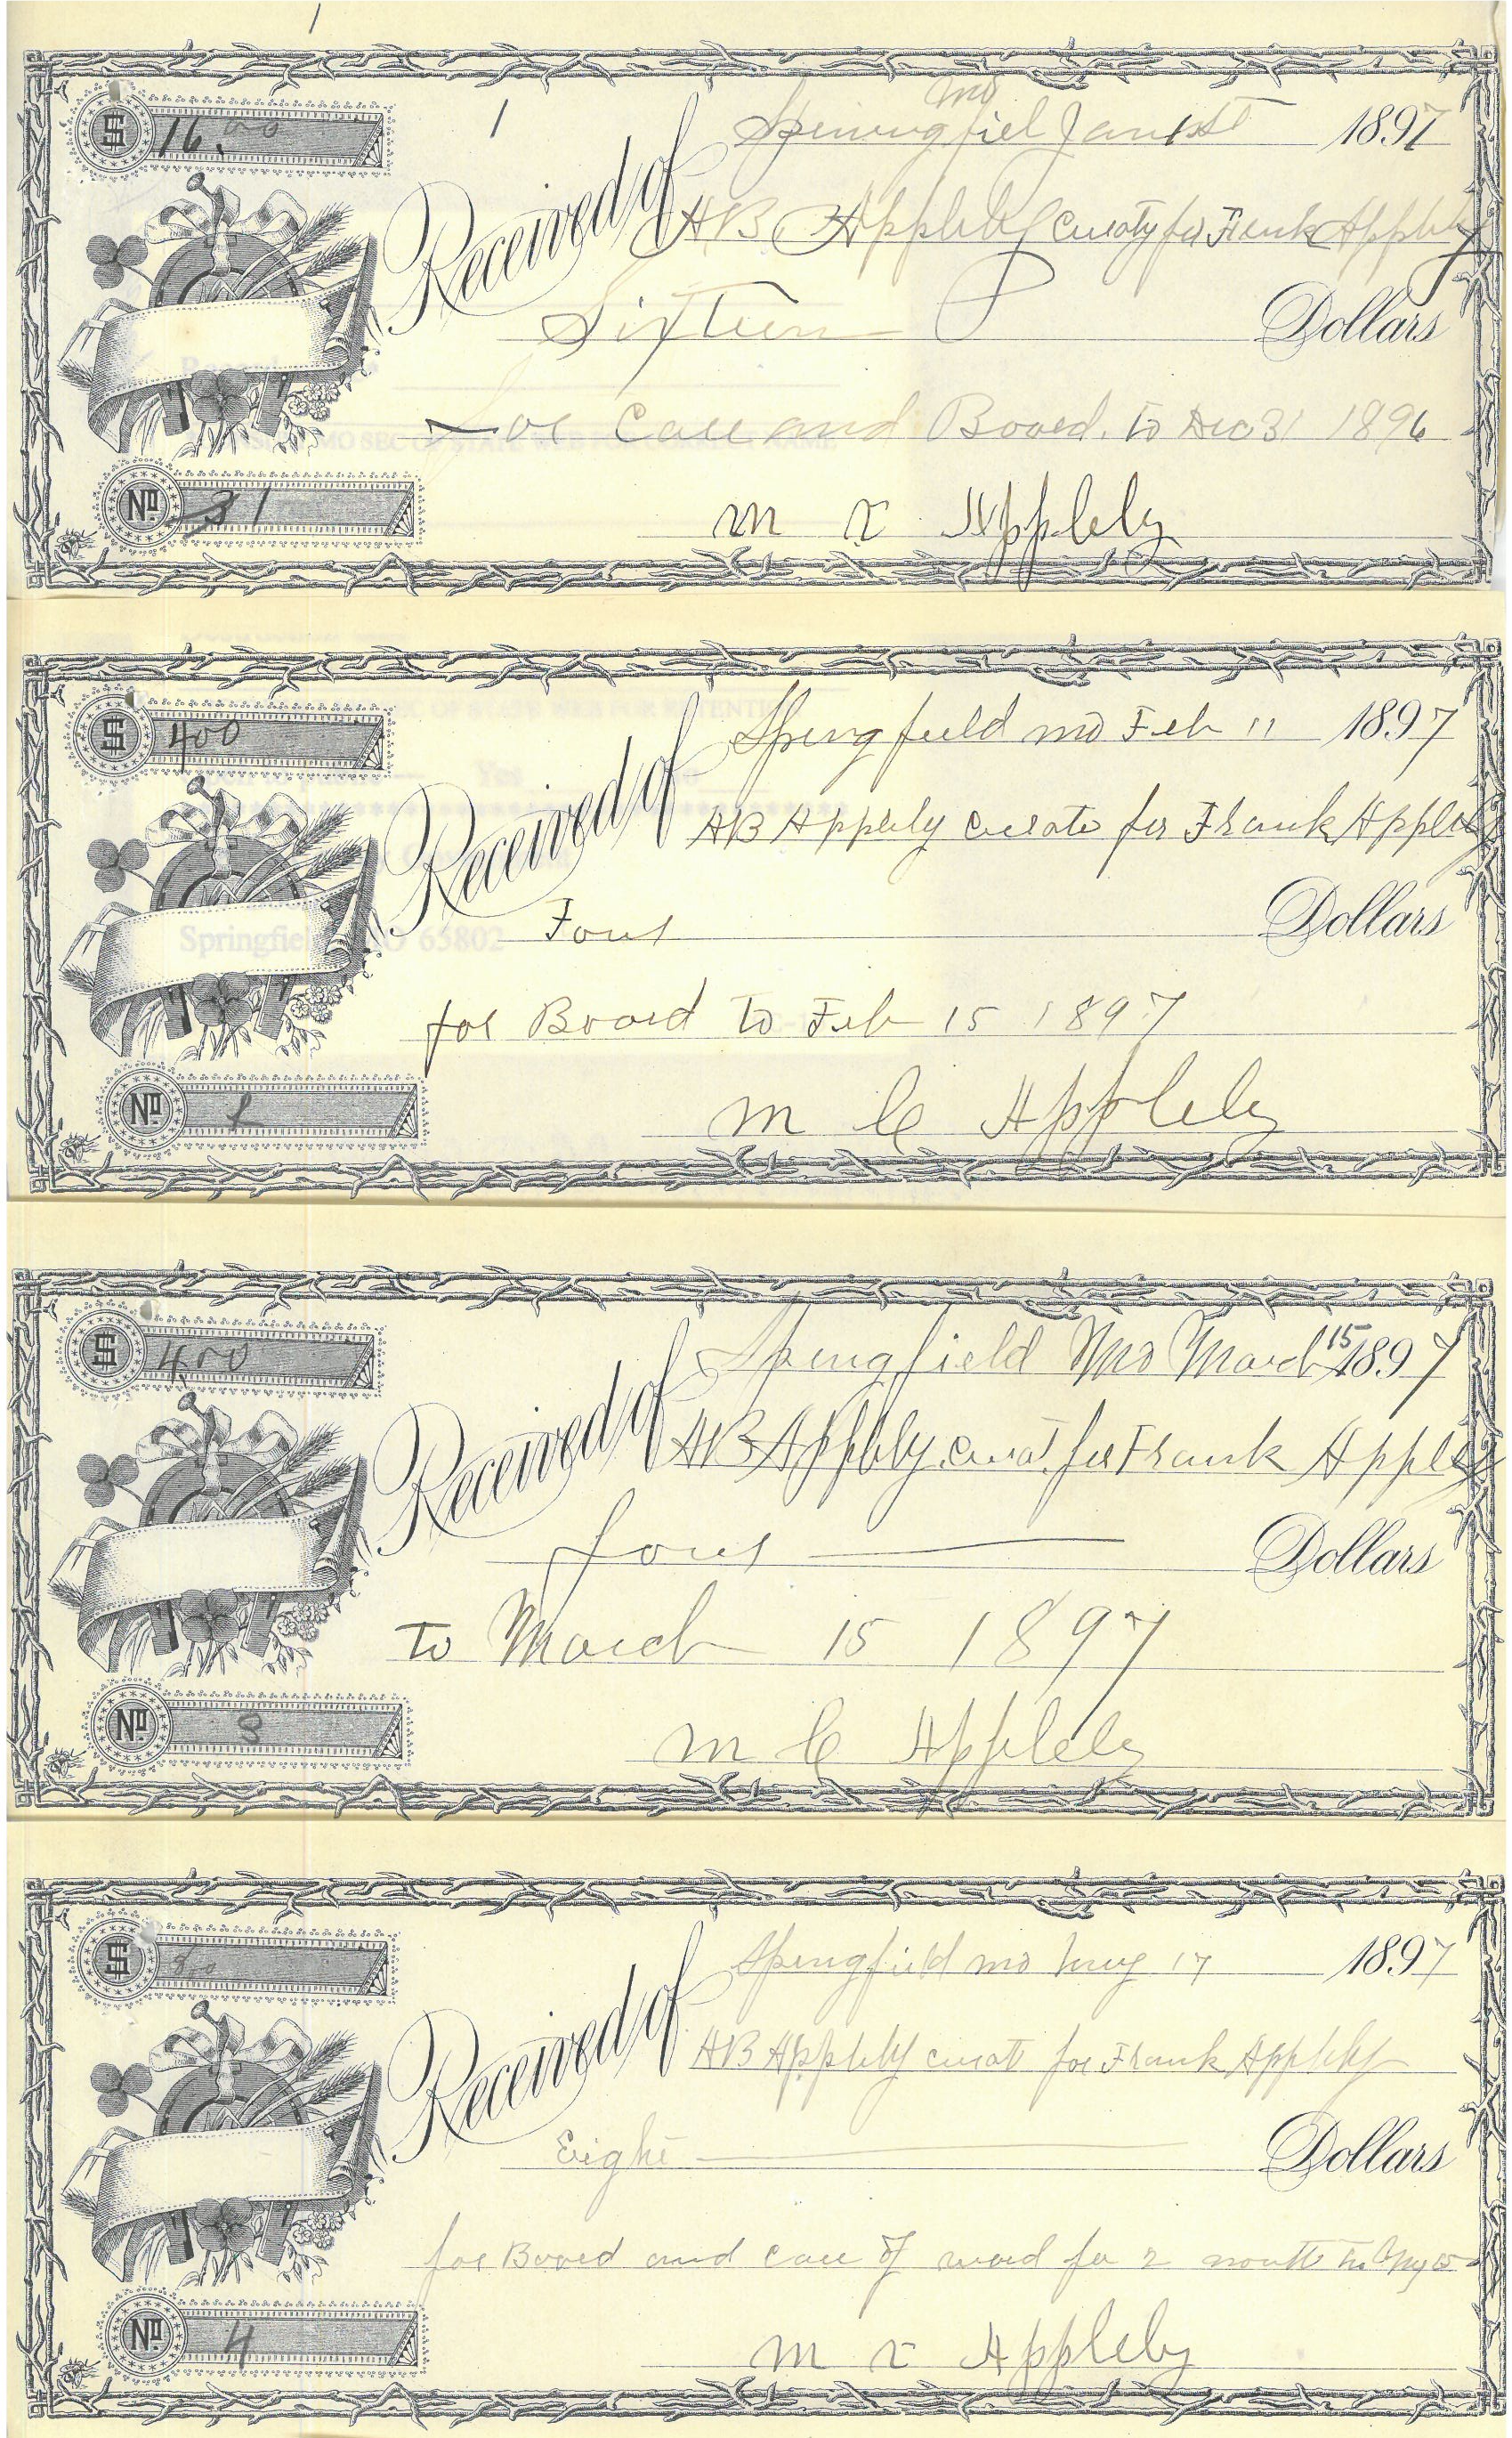 1
$ 16.00
1
Mo
Springfiel Jan 1st 1897
Received of AB Appleby Curaty for Frank Appleby
Sixteen Dollars
For Care and Board. to Dec 31 1896
No 1
M C Appleby
$ 400
Springfield Mo Feb 11 1897
Received of AB Appleby Curato for Frank Appleby
Four Dollars
Springfield MO 65802
for Board to Feb 15 1897
No 2
M C Appleby
$ 400
Springfield Mo March 15 1897
Received of AB Appleby Curat. for Frank Appleby
four Dollars
to March 15 1897
No 3
M C Appleby
$ 800
Springfield Mo May 17 1897
Received of AB Appleby curat for Frank Appleby
Eight Dollars
for Board and care of ward for 2 month to My 15
No 4
M C Appleby